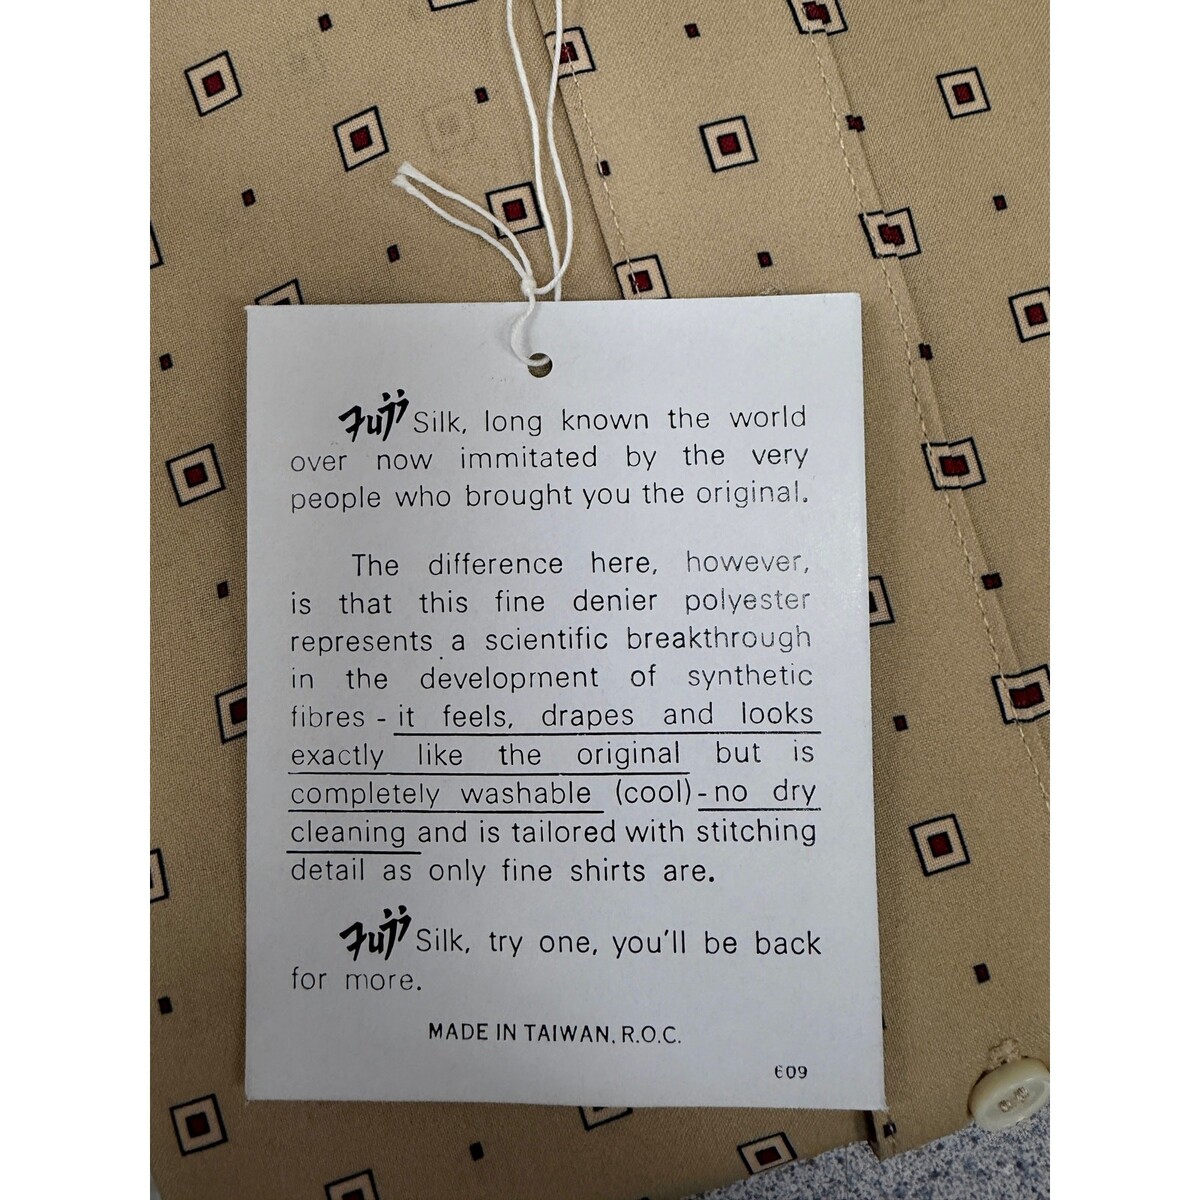 Fuji Silk, long known the world
over now immitated by the very
people who brought you the original.
The difference here, however,
is that this fine denier polyester
represents a scientific breakthrough
in the development of synthetic
fibres - it feels, drapes and looks
exactly like the original but is
completely washable (cool) - no dry
cleaning and is tailored with stitching
detail as only fine shirts are.
Fuji Silk, try one, you'll be back
for more.
MADE IN TAIWAN, R.O.C.
609